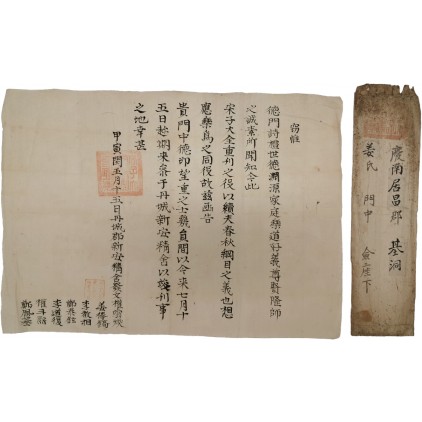 慶南居昌郡 基洞
姜氏 門中 僉座下
窃惟
德門詩禮世德淵源家庭樂道好義尊賢隆師
之誠素所聞知今此
宋子大全重刊之役以續天春秋綱目之義也想
應樂爲之同役故玆通告
貴門中德卲望重之士幾員間以今來七月十
五日趁期來會于丹城新安精舍以議刊事
之地幸甚
甲寅閏五月十五日丹城郡新安精舍發文權
姜
李
鄭
李道復
權
鄭